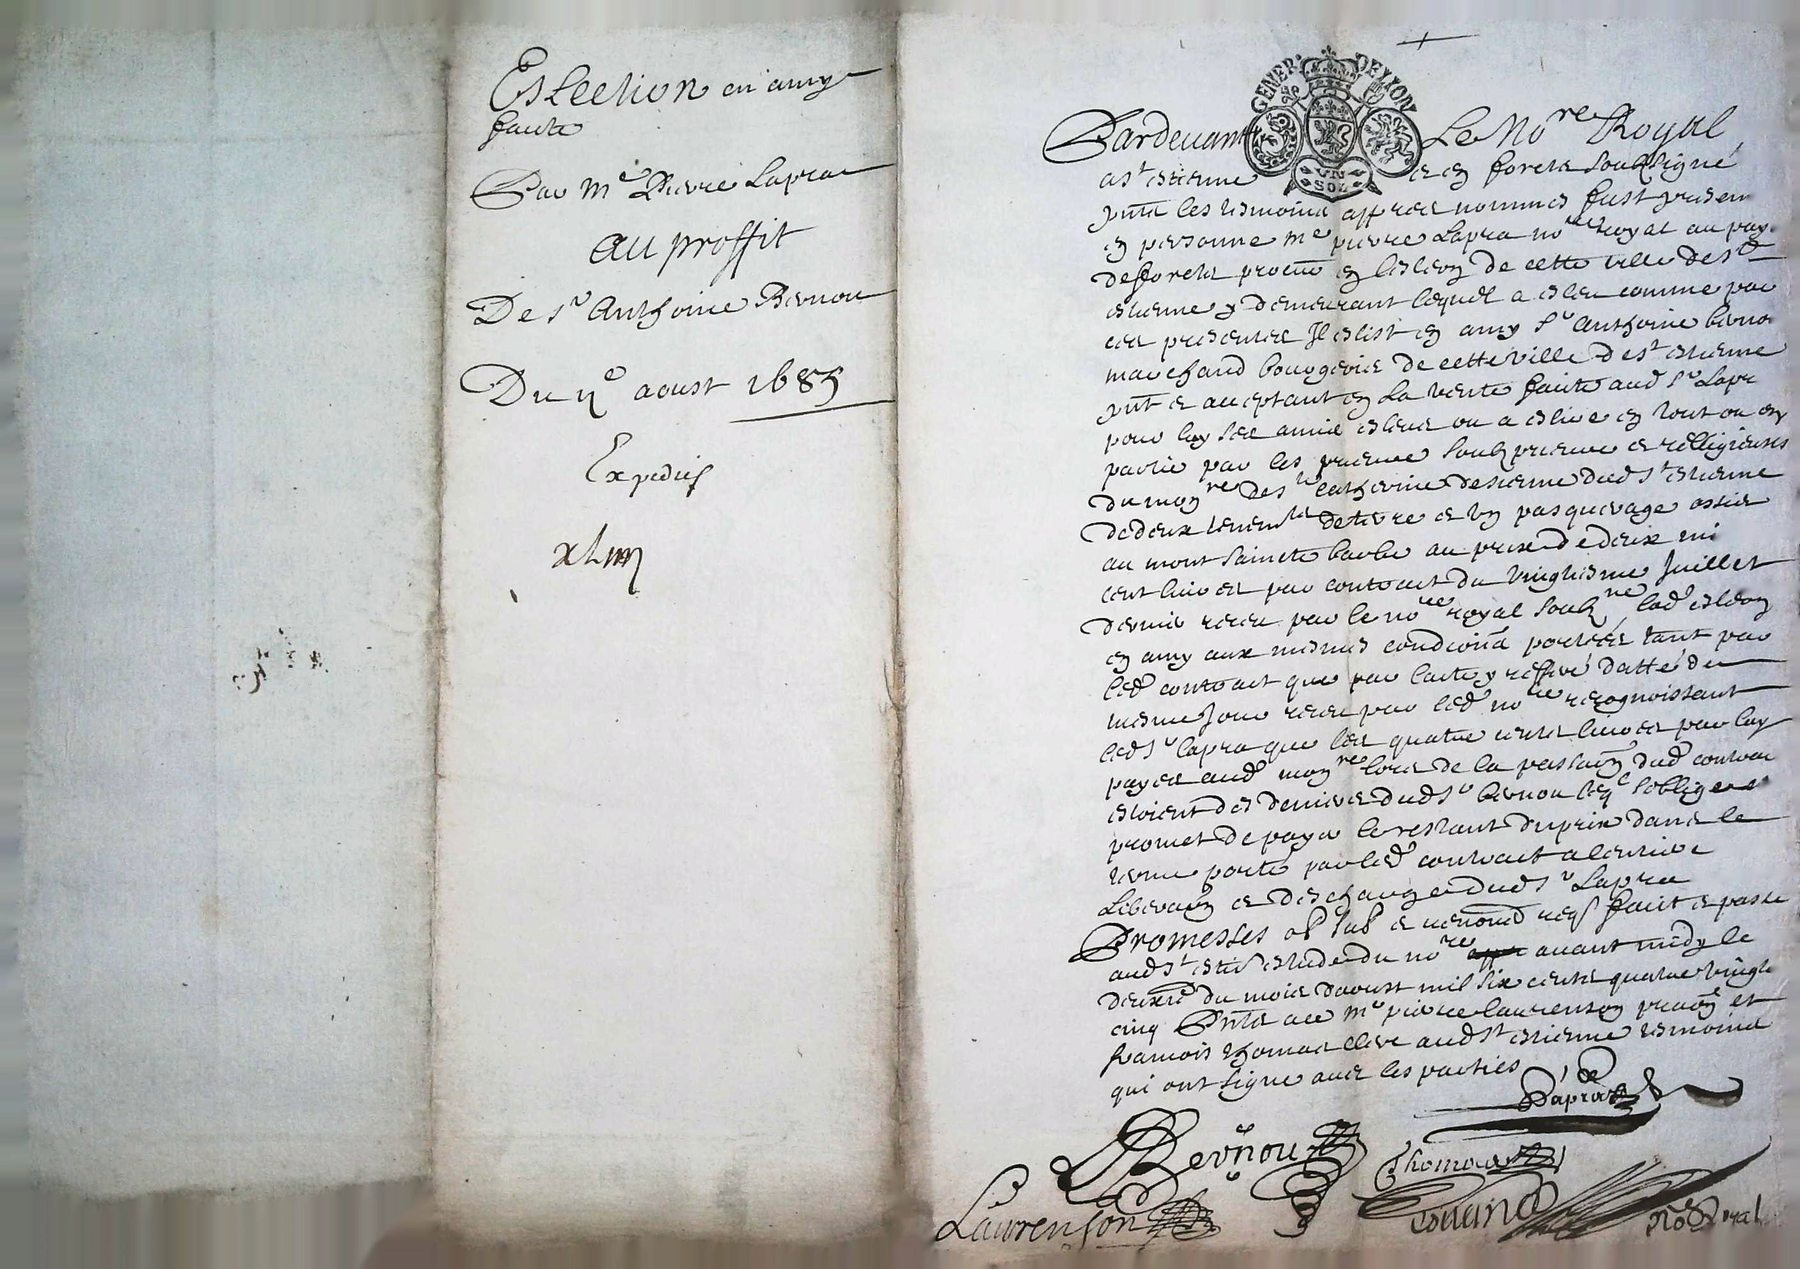 Eslection en amy
faicte
Par Me Pierre Lapra
au proffit
De Sr Anthoine Bernou
Du 2e aoust 1685
Expediés
GENER DE LION
UN
SOL
Pardevant Le Nore Royal
a St estienne en forests soubsigné
pnts les tesmoins appres nommes fust present
en personne Me pierre Lapra nore royal au pays
de forests procur en leslection de cette ville de St
estienne y demeurant lequel a esleu comme par
ces presentes Il eslist en amy Sr anthoine berno
marchand bourgeois de cette ville de St estienne
pnt et acceptant en La vente faicte aud Sr Lapra
pour luy ses amis esleus ou a eslire en tout ou en
partie par les prieure soubz prieure et relligieuses
du monre de Ste Catherine de sienne dud St estienne
de deux tenemts de terre et un pasquerage assis
au mont saincte barbe au prix de deux mil
cent livres par contract du vingtiesme Juillet
dernier receu par le nore royal soubzne lad eslection
en amy aux mesmes conditions portées tant par
led contract que par lacte y reffere datté du
mesme jour receu par led nore recognoissant
led Sr lapra que les quatre cents livres par luy
payes aud monre lors de la passation dud contract
estoient des deniers dud Sr bernou leql soblige et
promet de payer le restant du prix dans le
terme porté par led contract a lentiere
Liberation et descharge dud Sr Lapra
Promesses obl sub et renond reqs faict et passé
aud St estie estude du nore avant midy le
deuxie du mois daoust mil six cents quatre vingts
cinq Pnts a ce Me pierre laurenson praon et
francois thomas clerc aud St estienne tesmoins
qui ont signe avec les parties
Lapra
Bernou
Thomas
Laurenson
Nore Royal